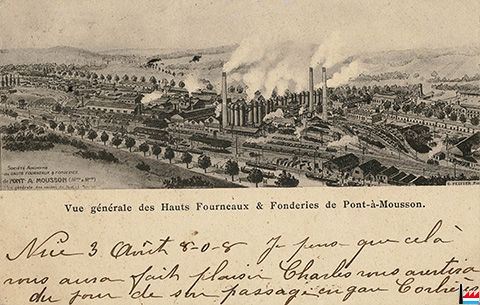 SOCIÉTÉ ANONYME
DES HAUTS FOURNEAUX & FONDERIES
DE PONT A MOUSSON
Vue générale des Hauts Fourneaux & Fonderies de Pont-à-Mousson.
Nice 3 Août 8-0-8 Je pense que celà
vous aura fait plaisir Charles vous avertira
du jour de son passage en gare